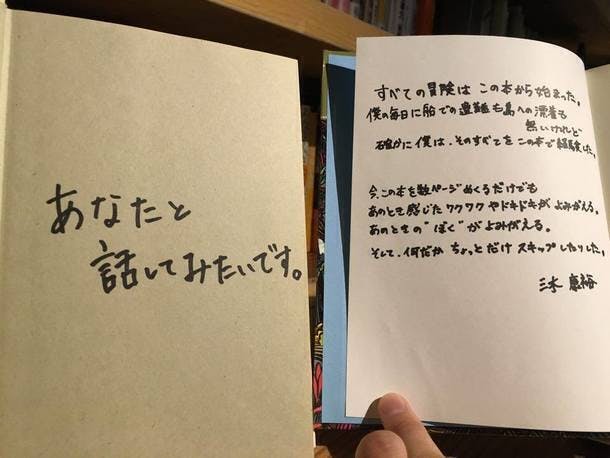 あなたと
話してみたいです。
すべての冒険は この本から始まった。
僕の毎日に船での遭難も島への漂着も
無いけれど
確かに僕は、そのすべてを この本で経験した。
今、この本を数ページめくるだけでも
あのとき感じたワクワクやドキドキが よみがえる。
あのときの"ぼく"が よみがえる。
そして、何だか ちょっとだけ スキップしたりした。
三木 康裕